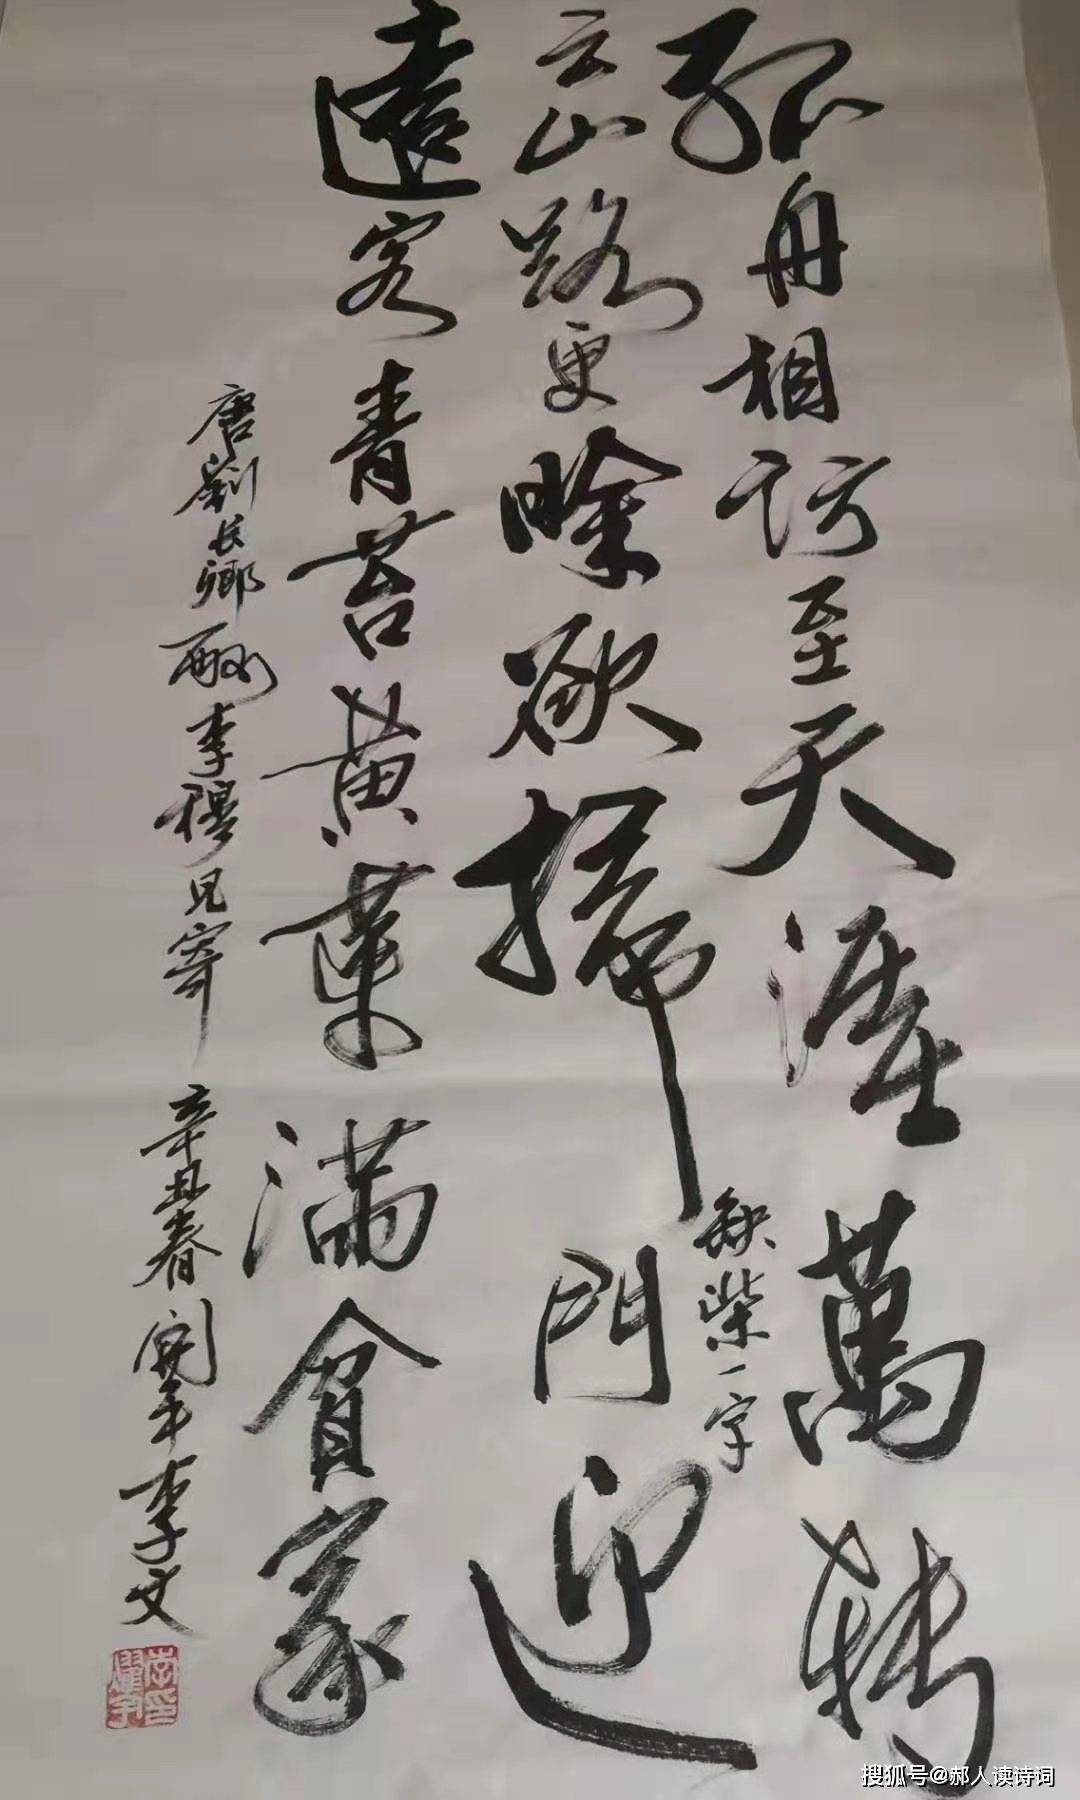 孤舟相訪至天涯萬轉
云山路更賒欲掃門迎
缺柴一字
遠客青苔黄葉滿貧家
唐劉长卿酬李穆見寄 辛丑春開年李文
搜狐号@郝人读诗词